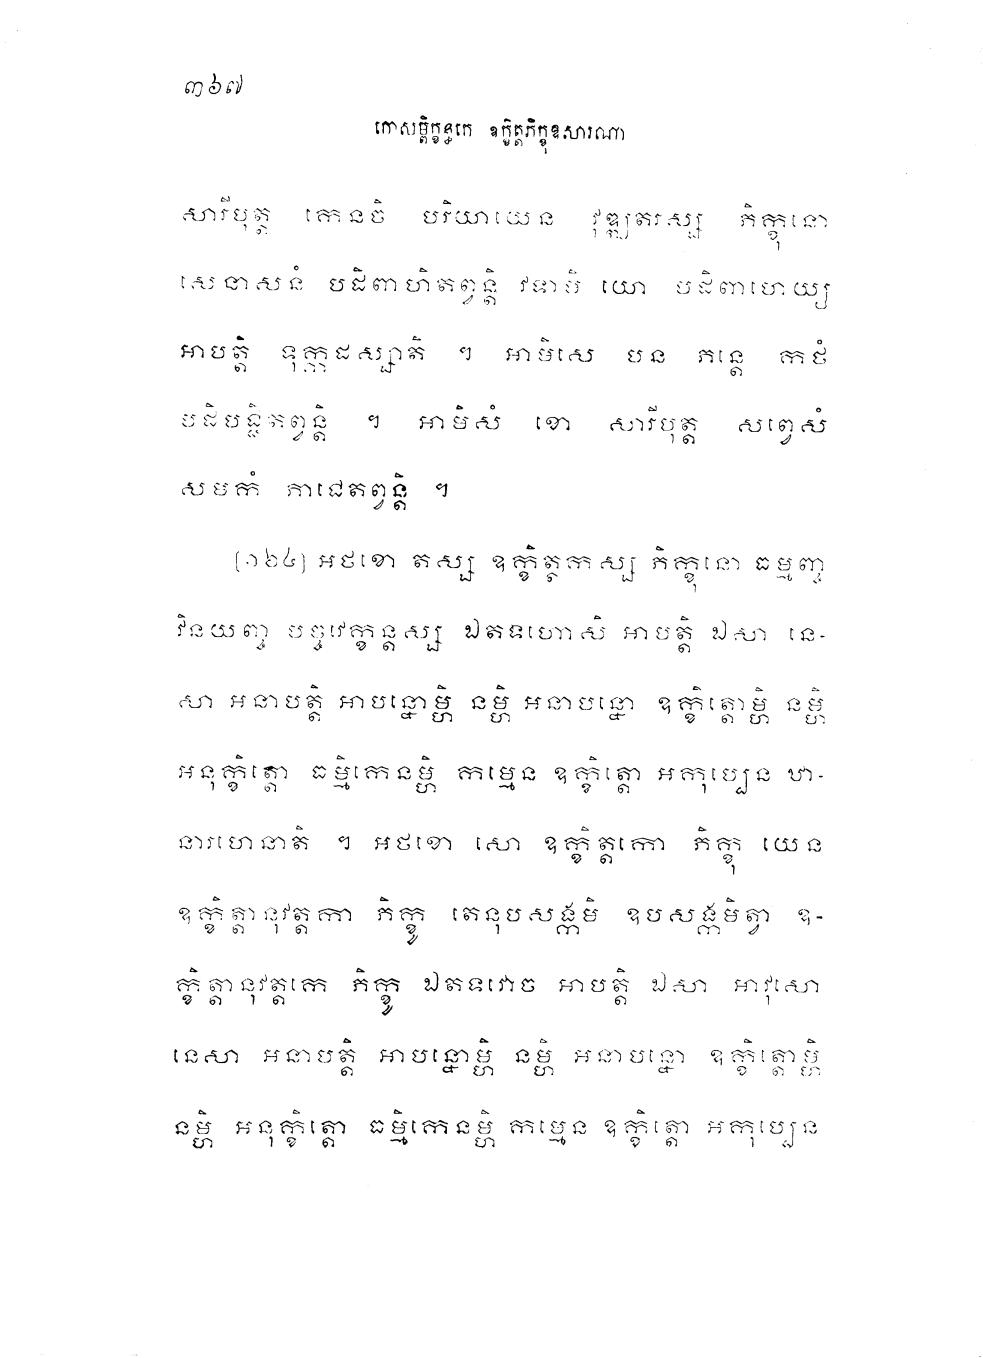 ៣៦៧
កោសម្ពិក្ខន្ធកេ ឧក្ខិត្តភិក្ខុឧសារណា
សារីបុត្ត កេនចិ បរិយាយេន វុឌ្ឍតរស្ស ភិក្ខុនោ
សេនាសនំ បដិពាហិតព្វន្តិ វទាមិ យោ បដិពាហេយ្យ
អាបត្តិ ទុក្កដស្សាតិ ។ អាមិសេ បន ភន្តេ កថំ
បដិបជ្ជិតព្វន្តិ ។ អាមិសំ ខោ សារីបុត្ត សព្វេសំ
សមកំ ភាជេតព្វន្តិ ។
[១៦៤] អថខោ តស្ស ឧក្ខិត្តកស្ស ភិក្ខុនោ ធម្មញ្ច
វិនយញ្ច បច្ចវេក្ខន្តស្ស ឯតទហោសិ អាបត្តិ ឯសា នេ-
សា អនាបត្តិ អាបន្នោម្ហិ នម្ហិ អនាបន្នោ ឧក្ខិត្តោម្ហិ នម្ហិ
អនុក្ខិត្តោ ធម្មិកេនម្ហិ កម្មេន ឧក្ខិត្តោ អកុប្បេន ឋា-
នារហេនាតិ ។ អថខោ សោ ឧក្ខិត្តកោ ភិក្ខុ យេន
ឧក្ខិត្តានុវត្តកា ភិក្ខូ តេនុបសង្កមិ ឧបសង្កមិត្វា ឧ-
ក្ខិត្តានុវត្តកេ ភិក្ខូ ឯតទវោច អាបត្តិ ឯសា អាវុសោ
នេសា អនាបត្តិ អាបន្នោម្ហិ នម្ហិ អនាបន្នោ ឧក្ខិត្តោម្ហិ
នម្ហិ អនុក្ខិត្តោ ធម្មិកេនម្ហិ កម្មេន ឧក្ខិត្តោ អកុប្បេន